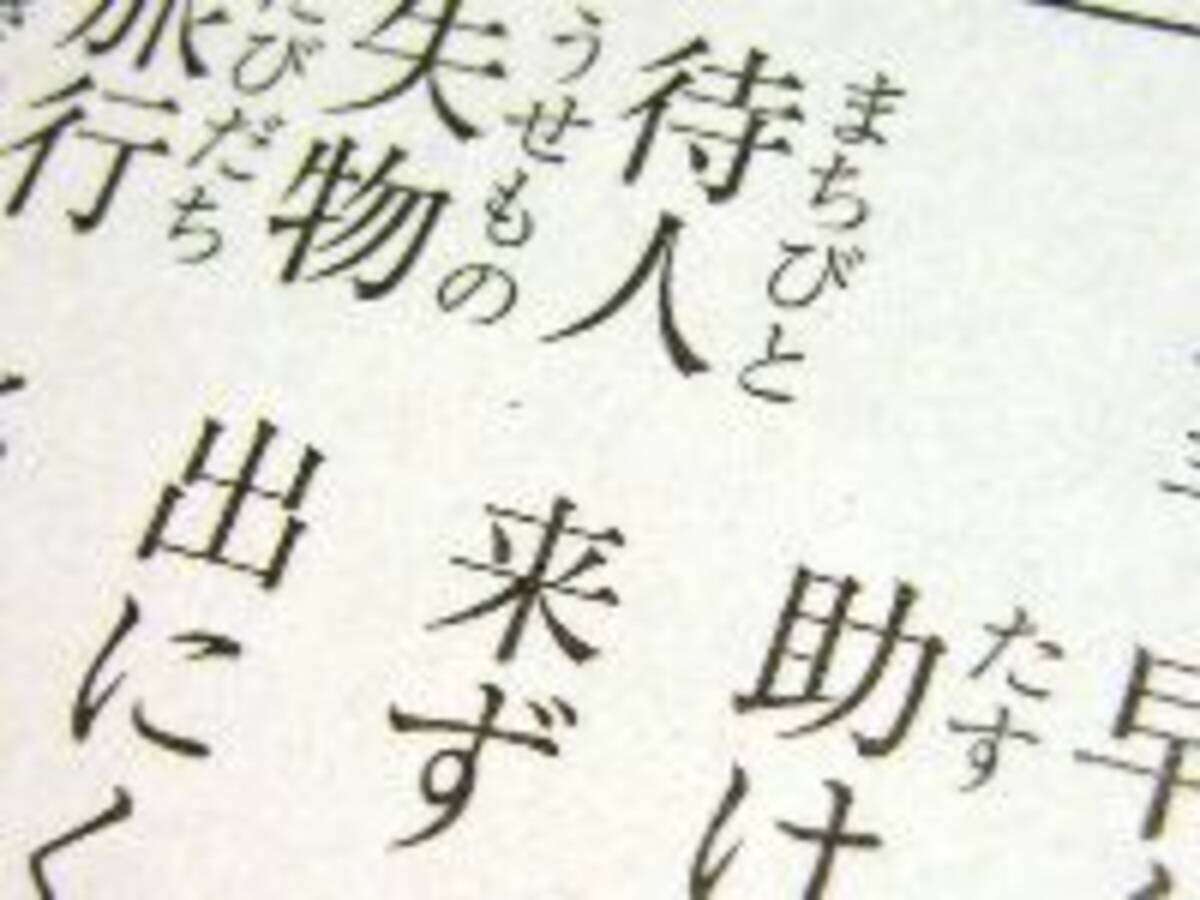 早
たす
助け
まちびと
待人 来ず
うせもの
失物 出にく
たびだち
旅行